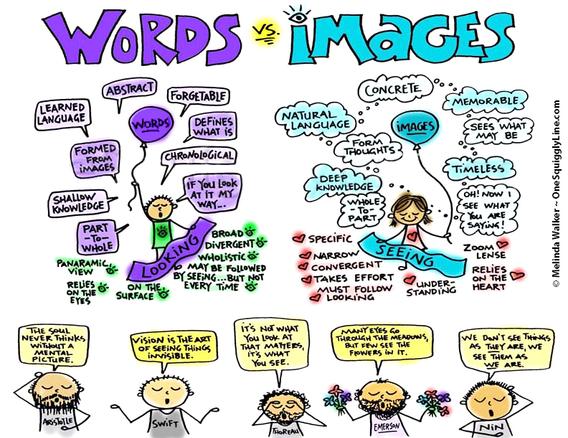 WORDS vs. iMAGES
ABSTRACT
LEARNED
LANGUAGE
FORGETABLE
WORDS
DEFINES
WHAT IS
FORMED
FROM
IMAGES
CHRONOLOGICAL
SHALLOW
KNOWLEDGE
IF YOU LOOK
AT IT MY
WAY...
PART
-TO-
WHOLE
LOOKING
BROAD
DIVERGENT
WHOLISTIC
MAY BE FOLLOWED
BY SEEING...BUT NOT
EVERY TIME
PANARAMIC
VIEW
RELIES
ON THE
EYES
ON THE
SURFACE
CONCRETE
MEMORABLE
NATURAL
LANGUAGE
IMAGES
SEES WHAT
MAY BE
FORM
THOUGHTS
TIMELESS
DEEP
KNOWLEDGE
WHOLE-
TO-PART
OH! NOW I
SEE WHAT
YOU ARE
SAYING!
SEEING
SPECIFIC
NARROW
CONVERGENT
TAKES EFFORT
MUST FOLLOW
LOOKING
UNDER-
STANDING
ZOOM
LENSE
RELIES
ON THE
HEART
© Melinda Walker ~ OneSquigglyLine.com
THE SOUL
NEVER THINKS
WITHOUT A
MENTAL
PICTURE.
ARISTOTLE
VISION IS THE ART
OF SEEING THINGS
INVISIBLE.
SWIFT
IT'S NOT WHAT
YOU LOOK AT
THAT MATTERS,
IT'S WHAT
YOU SEE.
THOREAU
MANY EYES GO
THROUGH THE MEADOWS,
BUT FEW SEE THE
FLOWERS IN IT.
EMERSON
WE DON'T SEE THINGS
AS THEY ARE, WE
SEE THEM AS
WE ARE.
NIN